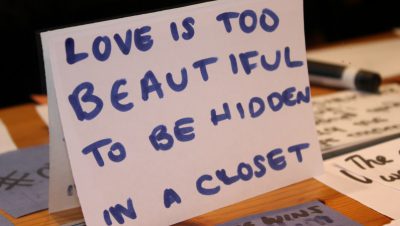 LOVE IS TOO
BEAUTIFUL
TO BE HIDDEN
IN A CLOSET
The